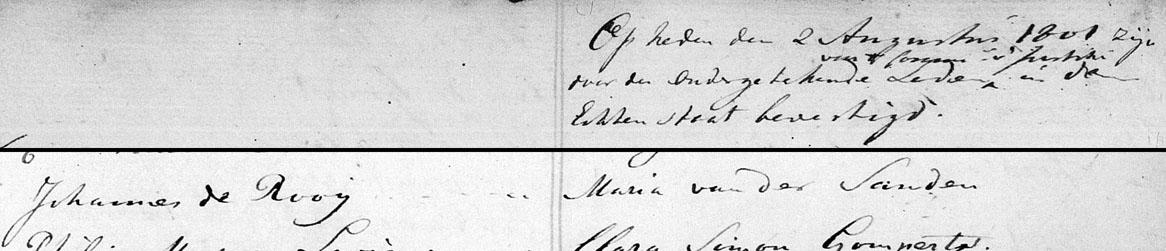 Op heden den 2 Augustus 1801 zijn
van 't Comm: v: Justitie
over de Ondergetekende Leden in den
Echten staat bevestigd.
6
Johannes de Rooij Maria van der Sanden
Clara Simon Gompertz.